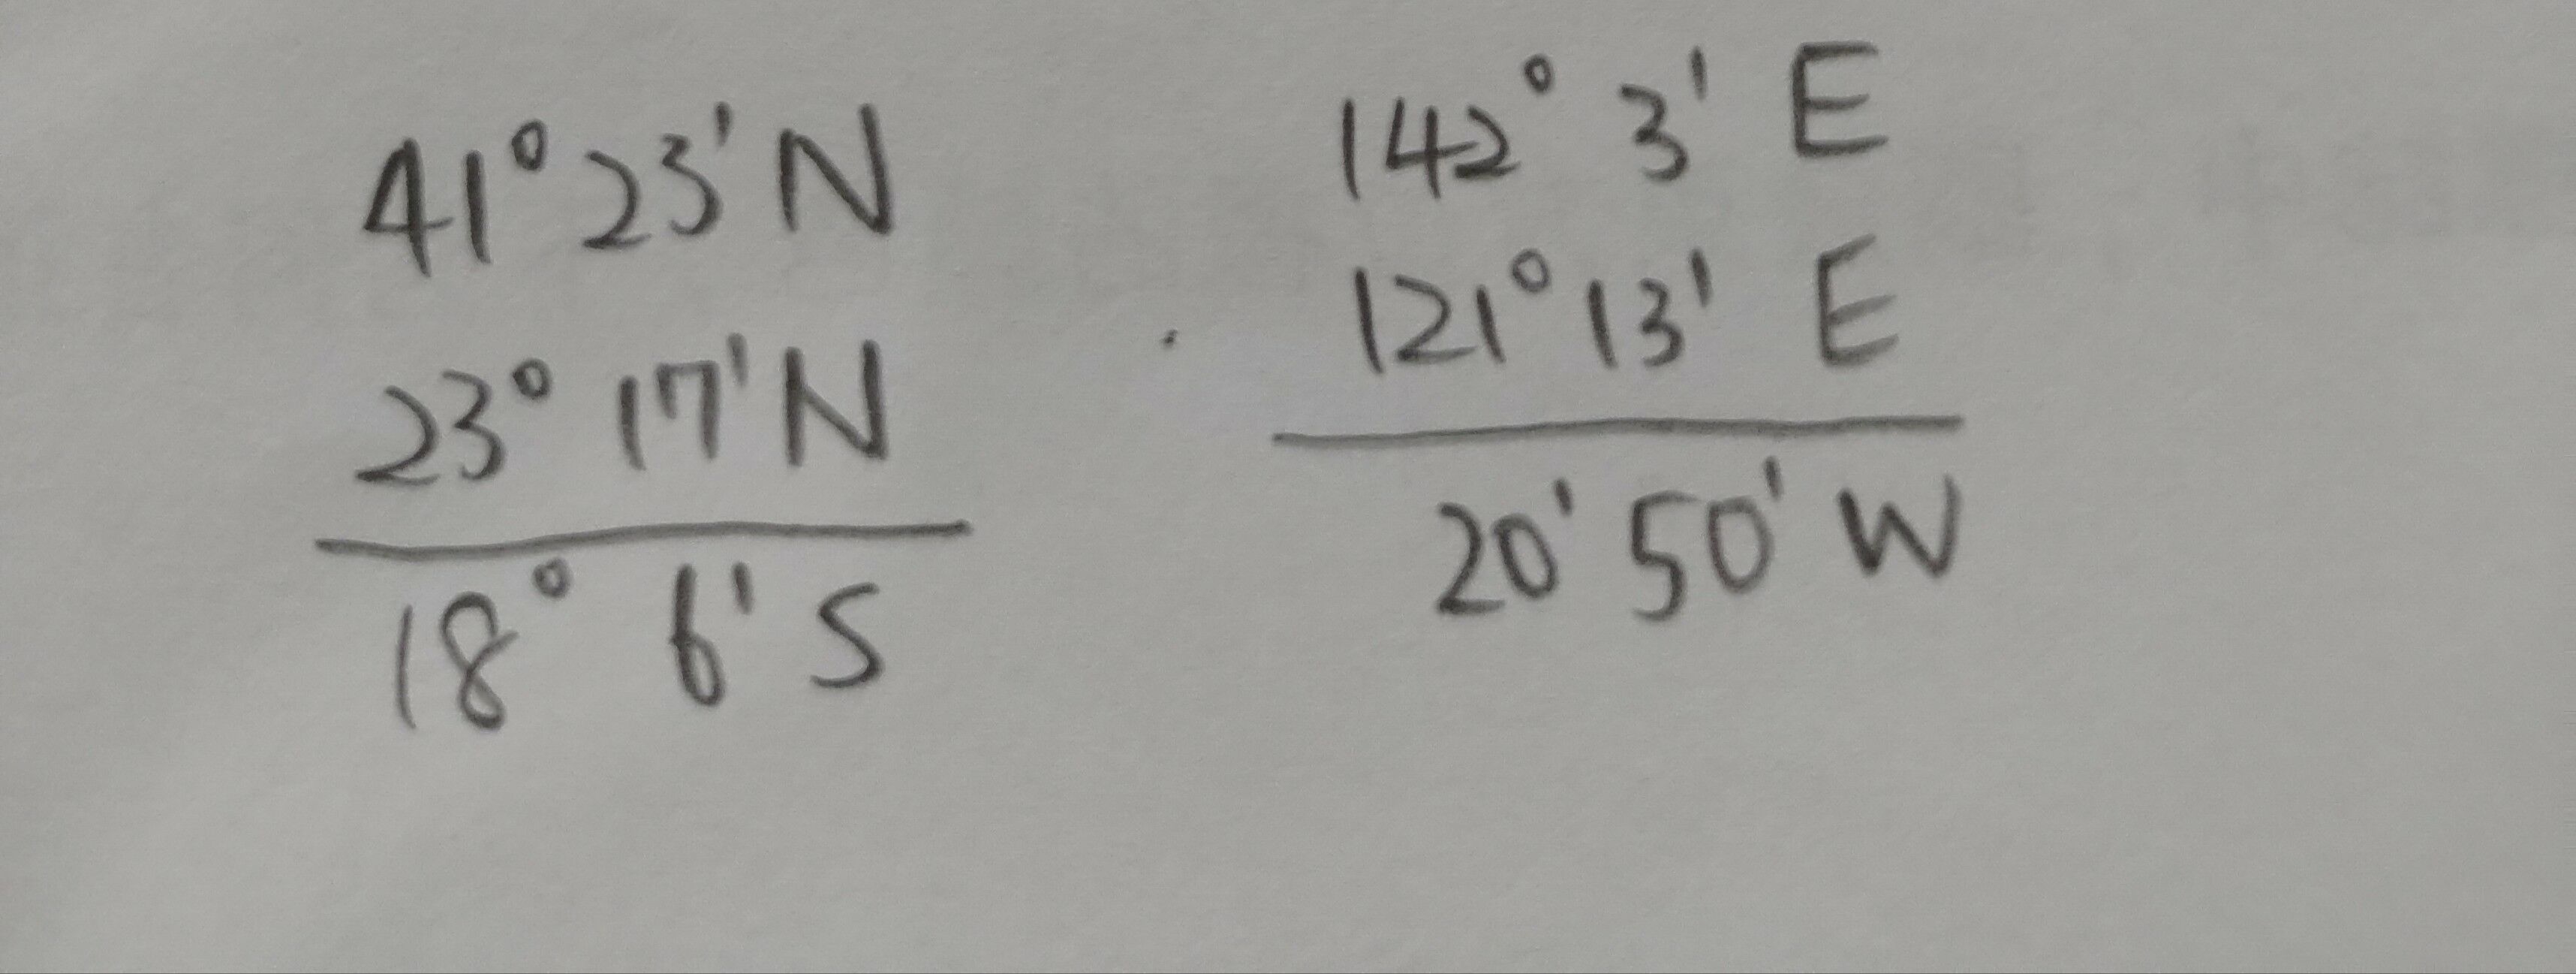 41° 23' N
23° 17' N
18° 6' S
142° 3' E
121° 13' E
20' 50' W